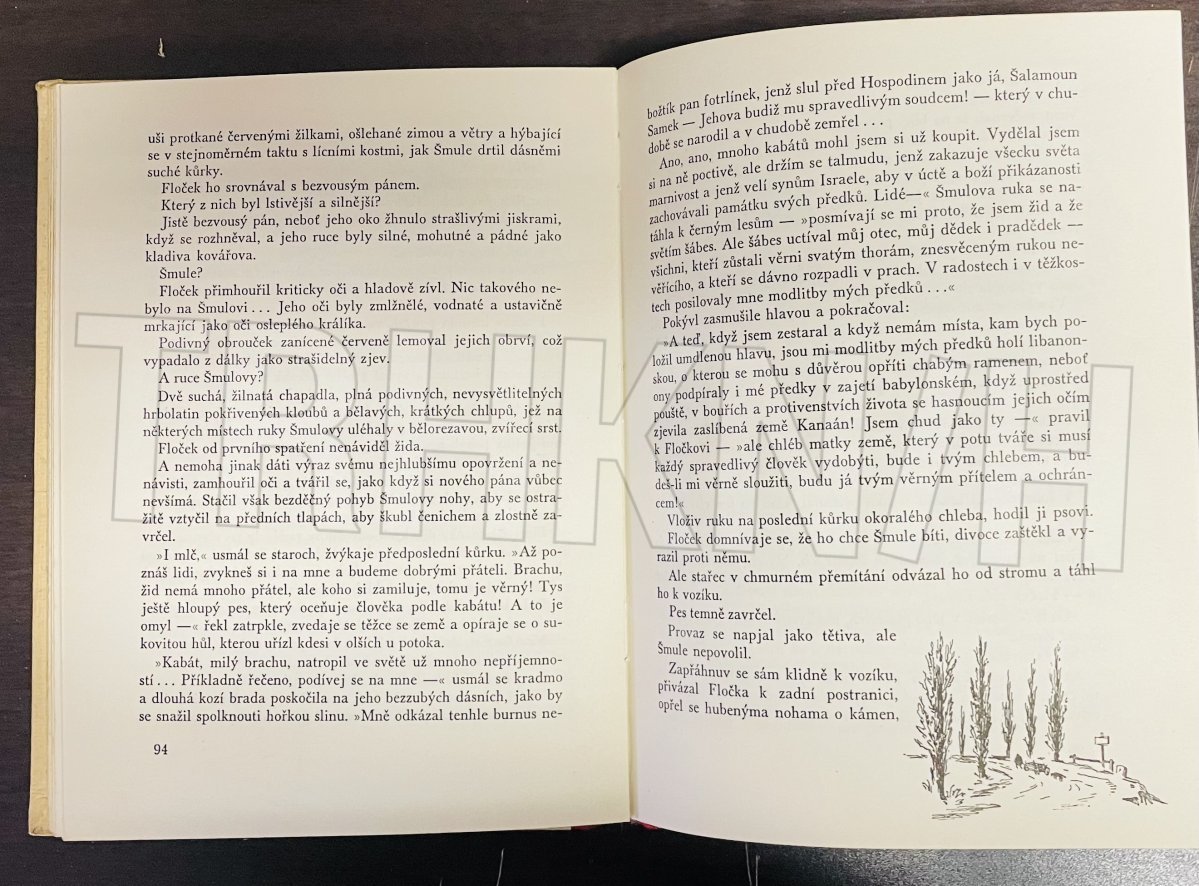 uši protkané červenými žilkami, ošlehané zimou a větry a hýbající
se v stejnoměrném taktu s lícními kostmi, jak Šmule drtil dásněmi
suché kůrky.
Floček ho srovnával s bezvousým pánem.
Který z nich byl lstivější a silnější?
Jistě bezvousý pán, neboť jeho oko žhnulo strašlivými jiskrami,
když se rozhněval, a jeho ruce byly silné, mohutné a pádné jako
kladiva kovářova.
Šmule?
Floček přimhouřil kriticky oči a hladově zívl. Nic takového ne-
bylo na Šmulovi... Jeho oči byly zmlžnělé, vodnaté a ustavičně
mrkající jako oči osleplého králíka.
Podivný obrouček zanícené červeně lemoval jejich obrví, což
vypadalo z dálky jako strašidelný zjev.
A ruce Šmulovy?
Dvě suchá, žilnatá chapadla, plná podivných, nevysvětlitelných
hrbolatin pokřivených kloubů a bělavých, krátkých chlupů, jež na
některých místech ruky Šmulovy uléhaly v bělorezavou, zvířecí srst.
Floček od prvního spatření nenáviděl žida.
A nemoha jinak dáti výraz svému nejhlubšímu opovržení a ne-
návisti, zamhouřil oči a tvářil se, jako když si nového pána vůbec
nevšímá. Stačil však bezděčný pohyb Šmulovy nohy, aby se ostra-
žitě vztyčil na předních tlapách, aby škubl čenichem a zlostně za-
vrčel.
»I mlč,« usmál se staroch, žvýkaje předposlední kůrku. »Až po-
znáš lidi, zvykneš si i na mne a budeme dobrými přáteli. Brachu,
žid nemá mnoho přátel, ale koho si zamiluje, tomu je věrný! Tys
ještě hloupý pes, který oceňuje člověka podle kabátu! A to je
omyl —« řekl zatrpkle, zvedaje se těžce se země a opíraje se o su-
kovitou hůl, kterou uřízl kdesi v olších u potoka.
»Kabát, milý brachu, natropil ve světě už mnoho nepříjemno-
stí... Příkladně řečeno, podívej se na mne —« usmál se kradmo
a dlouhá kozí brada poskočila na jeho bezzubých dásních, jako by
se snažil spolknouti hořkou slinu. »Mně odkázal tenhle burnus ne-
94
božtík pan fotrlínek, jenž slul před Hospodinem jako já, Šalamoun
Samek — Jehova budiž mu spravedlivým soudcem! — který v chu-
době se narodil a v chudobě zemřel...
Ano, ano, mnoho kabátů mohl jsem si už koupit. Vydělal jsem
si na ně poctivě, ale držím se talmudu, jenž zakazuje všecku světa
marnivost a jenž velí synům Israele, aby v úctě a boží přikázanosti
zachovávali památku svých předků. Lidé—« Šmulova ruka se na-
táhla k černým lesům — »posmívají se mi proto, že jsem žid a že
světím šábes. Ale šábes uctíval můj otec, můj dědek i pradědek —
všichni, kteří zůstali věrni svatým thorám, znesvěceným rukou ne-
věřícího, a kteří se dávno rozpadli v prach. V radostech i v těžkos-
tech posilovaly mne modlitby mých předků...«
Pokývl zasmušile hlavou a pokračoval:
»A teď, když jsem zestaral a když nemám místa, kam bych po-
ložil umdlenou hlavu, jsou mi modlitby mých předků holí libanon-
skou, o kterou se mohu s důvěrou opříti chabým ramenem, neboť
ony podpíraly i mé předky v zajetí babylonském, když uprostřed
pouště, v bouřích a protivenstvích života se hasnoucím jejich očím
zjevila zaslíbená země Kanaán! Jsem chud jako ty —« pravil
k Fločkovi — »ale chléb matky země, který v potu tváře si musí
každý spravedlivý člověk vydobýti, bude i tvým chlebem, a bu-
deš-li mi věrně sloužiti, budu já tvým věrným přítelem a ochrán-
cem!«
Vloživ ruku na poslední kůrku okoralého chleba, hodil ji psovi.
Floček domnívaje se, že ho chce Šmule bíti, divoce zaštěkl a vy-
razil proti němu.
Ale stařec v chmurném přemítání odvázal ho od stromu a táhl
ho k vozíku.
Pes temně zavrčel.
Provaz se napjal jako tětiva, ale
Šmule nepovolil.
Zapřáhnuv se sám klidně k vozíku,
přivázal Fločka k zadní postranici,
opřel se hubenýma nohama o kámen,
TRHKNIH